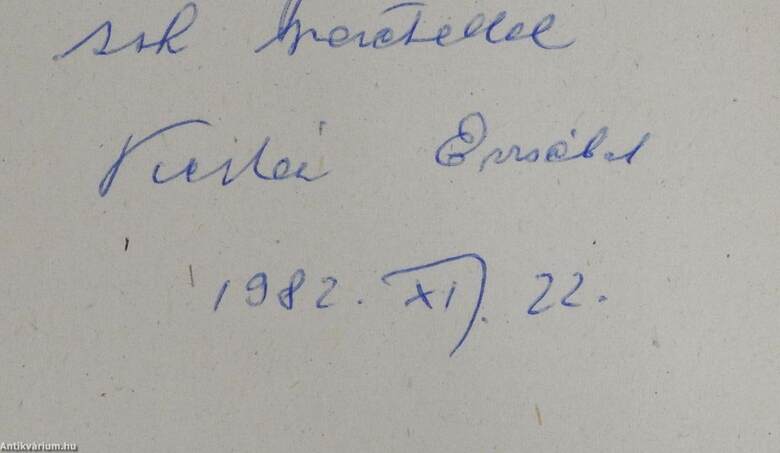 sok szeretettel
Erzsébet
1982. XI. 22.
Antikvárium.hu